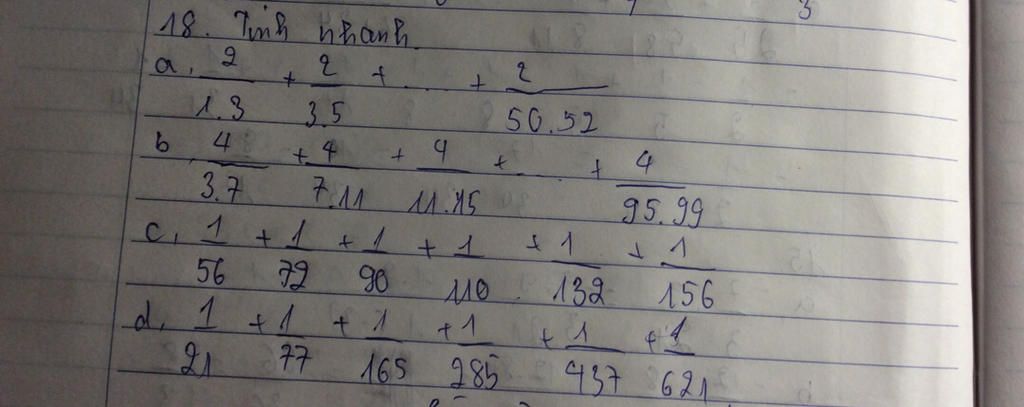 18. Tính nhanh
a, 2/1.3 + 2/3.5 + ... + 2/50.52
b, 4/3.7 + 4/7.11 + 4/11.15 + ... + 4/95.99
c, 1/56 + 1/72 + 1/90 + 1/110 + 1/132 + 1/156
d, 1/21 + 1/77 + 1/165 + 1/285 + 1/437 + 1/621